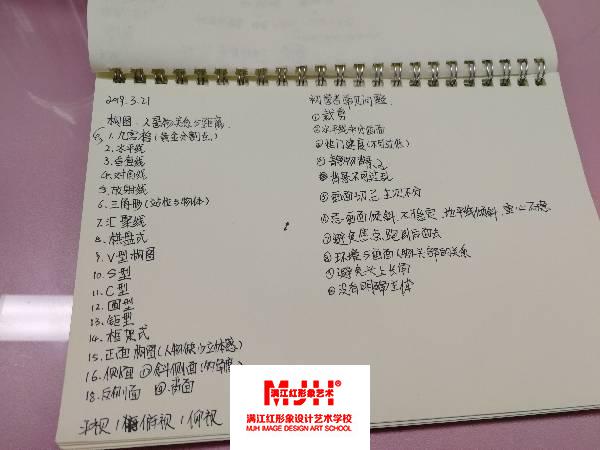 2019.3.21
构图:人景物关系与距离
1.九宫格(黄金分割点)
2.水平线
3.垂直线
4.对角线
5.放射线
6.三角形(站位与物体)
7.汇聚线
8.棋盘式
9.V型构图
10.S型
11.C型
12.圆型
13.矩型
14.框架式
15.正面构图(人物缺少立体感)
16.侧面 ⑰斜侧面(的角度)
18.反侧面 ⑲背面
平视 / 俯视 / 仰视
初学者常见问题
①裁剪
②水平线平分画面
③快门速度(不可过低)
⑤背景不可过乱
⑥画面切忌主次不分
⑦忌画面倾斜.不稳定.地平线倾斜.重心不稳
⑧避免焦点跑到后面去
⑨环境与画面人物头部的关系
⑩避免头上长角
⑪没有明确主体
满江红形象艺术
MJH
满江红形象设计艺术学校
MJH IMAGE DESIGN ART SCHOOL